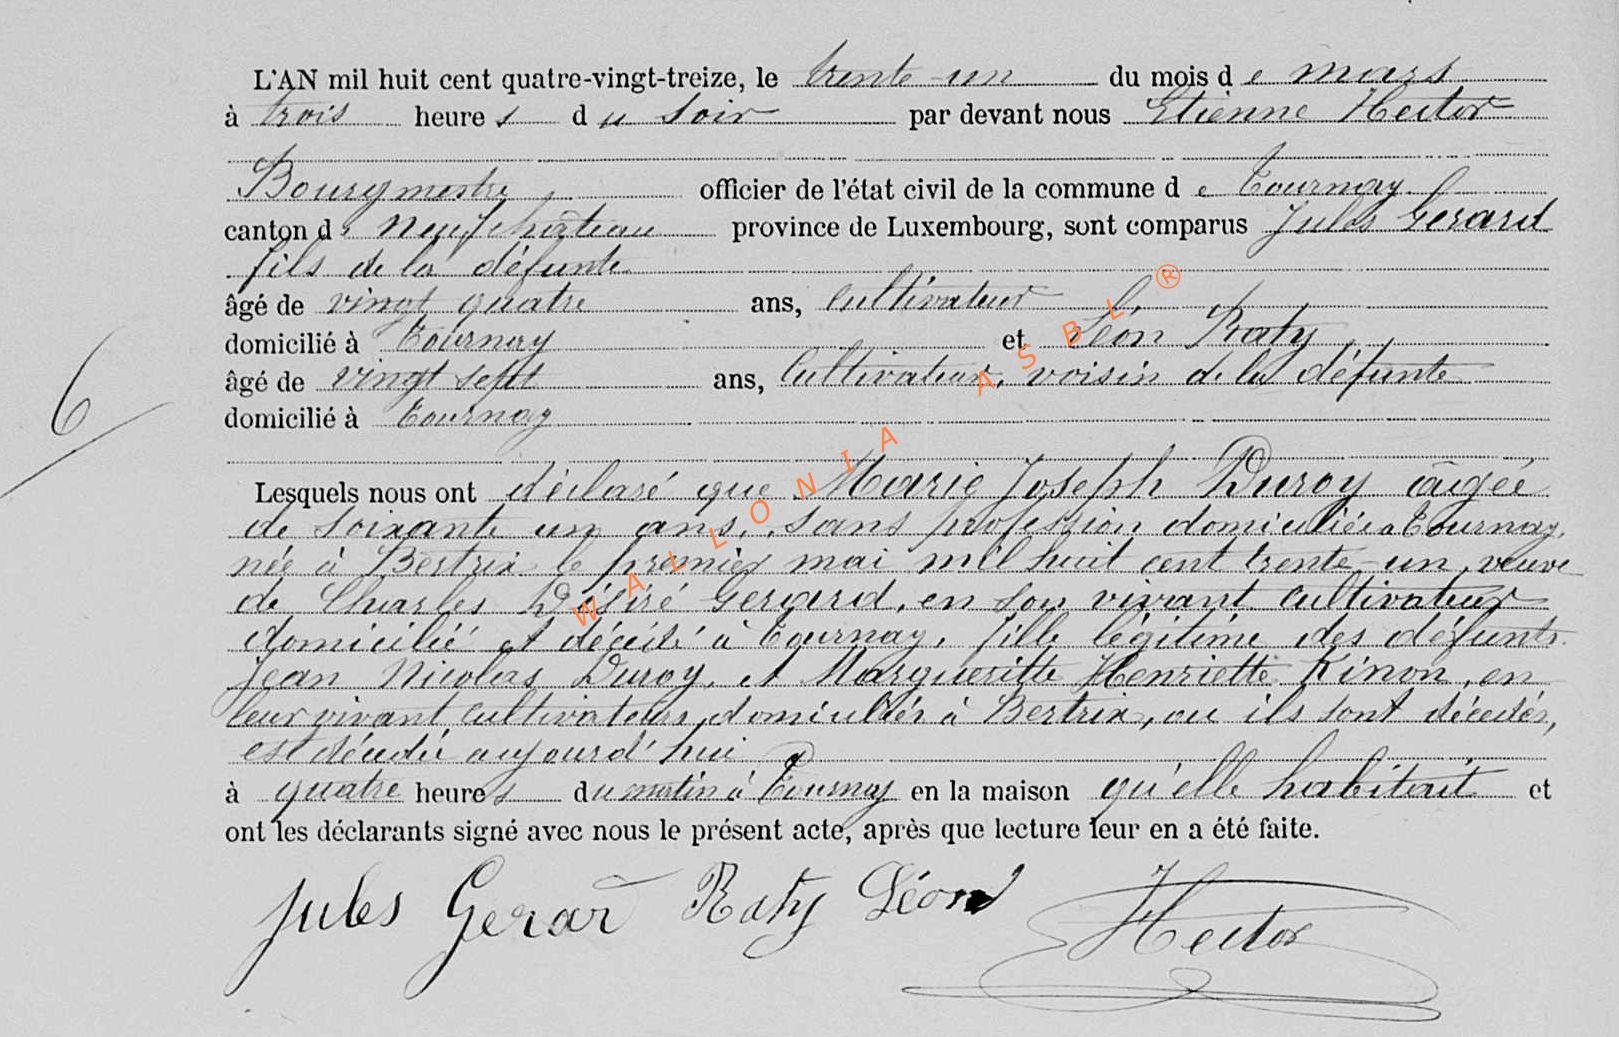 L'AN mil huit cent quatre-vingt-treize, le trente-un du mois de mars
à trois heures du soir par devant nous Etienne Hector
Bourgmestre, officier de l'état civil de la commune de Tournay
canton de Neufchâteau province de Luxembourg, sont comparus Jules Gerard
fils de la défunte
âgé de vingt quatre ans, cultivateur
domicilié à Tournay et Léon Raty
âgé de vingt sept ans, Cultivateur, voisin de la défunte
domicilié à Tournay
6
Lesquels nous ont déclaré que Marie Joseph Duroy âgée
de soixante un ans, sans profession domiciliée à Tournay,
née à Bertrix le premier mai mil huit cent trente-un, veuve
de Charles Désiré Gerard, en son vivant cultivateur
domicilié et décédé à Tournay, fille légitime des défunts
Jean Nicolas Duroy, et Margueritte Henriette Kinon, en
leur vivant cultivateurs, domiciliés à Bertrix, où ils sont décédés,
est décédée aujourd'hui
à quatre heures du matin à Tournay en la maison qu'elle habitait et
ont les déclarants signé avec nous le présent acte, après que lecture leur en a été faite.
Jules Gerar Raty Léon Hector
WALLONIA ASBL ®